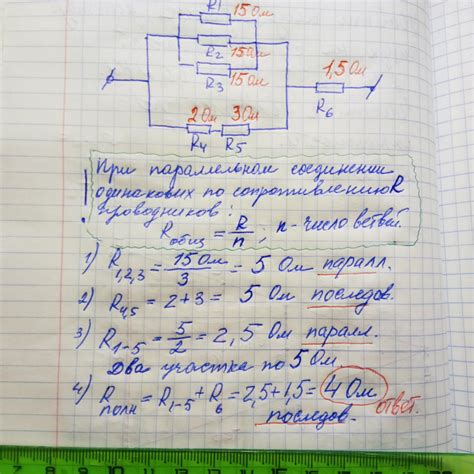 R1 15Ом
R2 15Ом
R3 15Ом
1,5Ом
R6
2Ом 3Ом
R4 R5
При параллельном соединении
одинаковых по сопротивлению R
проводников:
Rобщ = R/n ; n-число ветвей.
1) R1,2,3 = 15Ом/3 = 5 Ом паралл.
2) R4,5 = 2+3 = 5 Ом последов.
3) R1-5 = 5/2 = 2,5 Ом паралл.
Два участка по 5 Ом
4) Rполн = R1-5 + R6 = 2,5+1,5 = 4 Ом ответ.
последов.
7 8 9 10 11